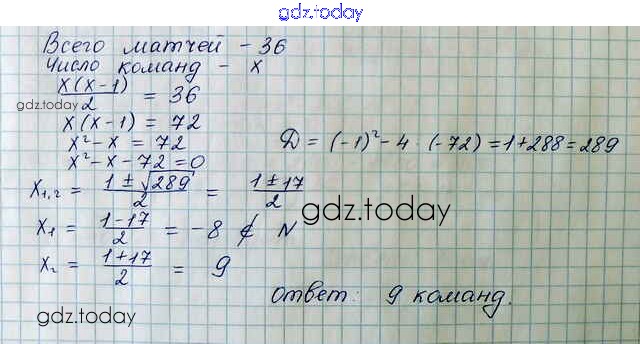 gdz.today
Всего матчей - 36
Число команд - x
x(x-1)/2 = 36
gdz.today
x(x-1) = 72
x² - x = 72
x² - x - 72 = 0
D = (-1)² - 4 · (-72) = 1 + 288 = 289
x₁,₂ = (1 ± √289)/2 = (1 ± 17)/2
gdz.today
x₁ = (1 - 17)/2 = -8 ∉ N
x₂ = (1 + 17)/2 = 9
ответ: 9 команд.
gdz.today